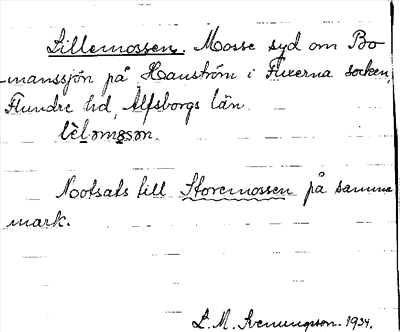 Lillemossen. Mosse syd om Bo-
manssjön på Hanström i Fuxerna socken,
Flundre hd, Älfsborgs län.
lèlomosən.
Motsats till Storemossen på samma
mark.
L. M. Svenungsson. 1934.